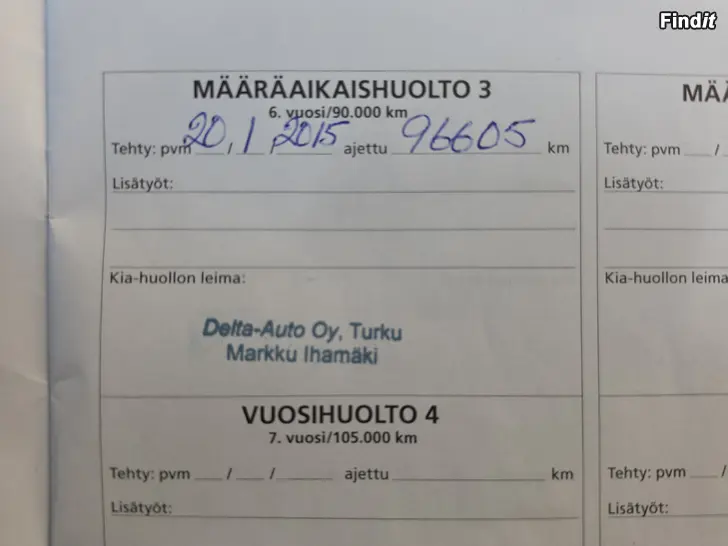 Findit
MÄÄRÄAIKAISHUOLTO 3
6. vuosi/90.000 km
Tehty: pvm 20 / 1 / 2015 ajettu 96605 km
Lisätyöt:
Kia-huollon leima:
Delta-Auto Oy, Turku
Markku Ihamäki
VUOSIHUOLTO 4
7. vuosi/105.000 km
Tehty: pvm ___ / ___ / ______ ajettu ______ km
Lisätyöt:
MÄÄ
Tehty: pvm ___ /
Lisätyöt:
Kia-huollon leima
Tehty: pvm ___ /
Lisätyöt: